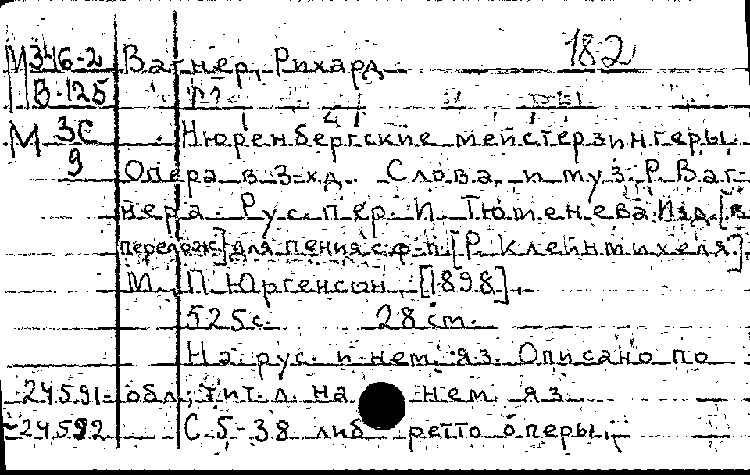 М346-2 Вагнер, Рихард 182
В-125
М 3С Нюренбергские мейстерзингеры.
9 Опера в 3-х д. Слова и муз. Р. Ваг-
нера. Рус. пер. И. Тюменева. Изд. [в
перелож.] для пения с ф-п. [Р. Клейнмихеля].
М., П. Юргенсон, [1898].
525 с. 28 см.
На рус. и нем. яз. Описано по
24591- обл., тит. л. на нем. яз.
-24592 С. 5-38 либретто оперы.